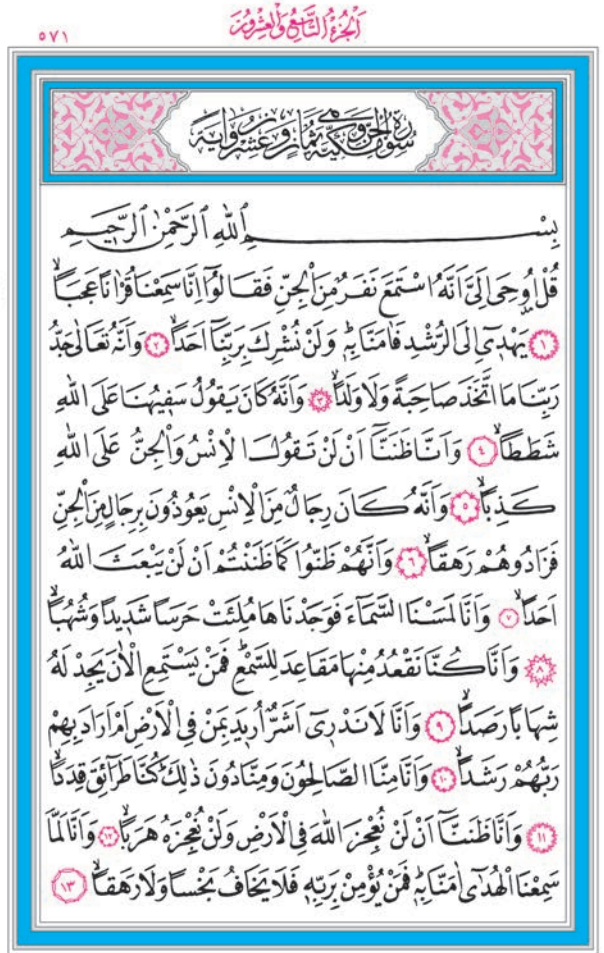 اَلْجُزْءُ التَّاسِعُ وَالْعِشْرُونَ
٥٧١
سُورَةُ الْجِنِّ مَكِّيَّةٌ وَهِيَ ثَمَانٍ وَعِشْرُونَ اٰيَةً
بِسْمِ اللّٰهِ الرَّحْمٰنِ الرَّحِيمِ
قُلْ اُو۫حِيَ اِلَيَّ اَنَّهُ اسْتَمَعَ نَفَرٌ مِنَ الْجِنِّ فَقَالُٓوا اِنَّا سَمِعْنَا قُرْاٰنًا عَجَبًاۙ
﴿١﴾ يَهْد۪ٓي اِلَى الرُّشْدِ فَاٰمَنَّا بِه۪ۜ وَلَنْ نُشْرِكَ بِرَبِّنَٓا اَحَدًاۙ ﴿٢﴾ وَاَنَّهُ تَعَالٰى جَدُّ
رَبِّنَا مَا اتَّخَذَ صَاحِبَةً وَلَا وَلَدًاۙ ﴿٣﴾ وَاَنَّهُ كَانَ يَقُولُ سَف۪يهُنَا عَلَى اللّٰهِ
شَطَطًاۙ ﴿٤﴾ وَاَنَّا ظَنَنَّٓا اَنْ لَنْ تَقُولَ الْاِنْسُ وَالْجِنُّ عَلَى اللّٰهِ
كَذِبًاۙ ﴿٥﴾ وَاَنَّهُ كَانَ رِجَالٌ مِنَ الْاِنْسِ يَعُوذُونَ بِرِجَالٍ مِنَ الْجِنِّ
فَزَادُوهُمْ رَهَقًاۙ ﴿٦﴾ وَاَنَّهُمْ ظَنُّوا كَمَا ظَنَنْتُمْ اَنْ لَنْ يَبْعَثَ اللّٰهُ
اَحَدًاۙ ﴿٧﴾ وَاَنَّا لَمَسْنَا السَّمَٓاءَ فَوَجَدْنَاهَا مُلِئَتْ حَرَسًا شَد۪يدًا وَشُهُبًاۙ
﴿٨﴾ وَاَنَّا كُنَّا نَقْعُدُ مِنْهَا مَقَاعِدَ لِلسَّمْعِۜ فَمَنْ يَسْتَمِعِ الْاٰنَ يَجِدْ لَهُ
شِهَابًا رَصَدًاۙ ﴿٩﴾ وَاَنَّا لَا نَدْر۪ٓي اَشَرٌّ اُر۪يدَ بِمَنْ فِي الْاَرْضِ اَمْ اَرَادَ بِهِمْ
رَبُّهُمْ رَشَدًاۙ ﴿١٠﴾ وَاَنَّا مِنَّا الصَّالِحُونَ وَمِنَّا دُونَ ذٰلِكَۜ كُنَّا طَرَٓائِقَ قِدَدًاۙ
﴿١١﴾ وَاَنَّا ظَنَنَّٓا اَنْ لَنْ نُعْجِزَ اللّٰهَ فِي الْاَرْضِ وَلَنْ نُعْجِزَهُ هَرَبًاۙ ﴿١٢﴾ وَاَنَّا لَمَّا
سَمِعْنَا الْهُدٰٓى اٰمَنَّا بِه۪ۜ فَمَنْ يُؤْمِنْ بِرَبِّه۪ فَلَا يَخَافُ بَخْسًا وَلَا رَهَقًاۙ ﴿١٣﴾